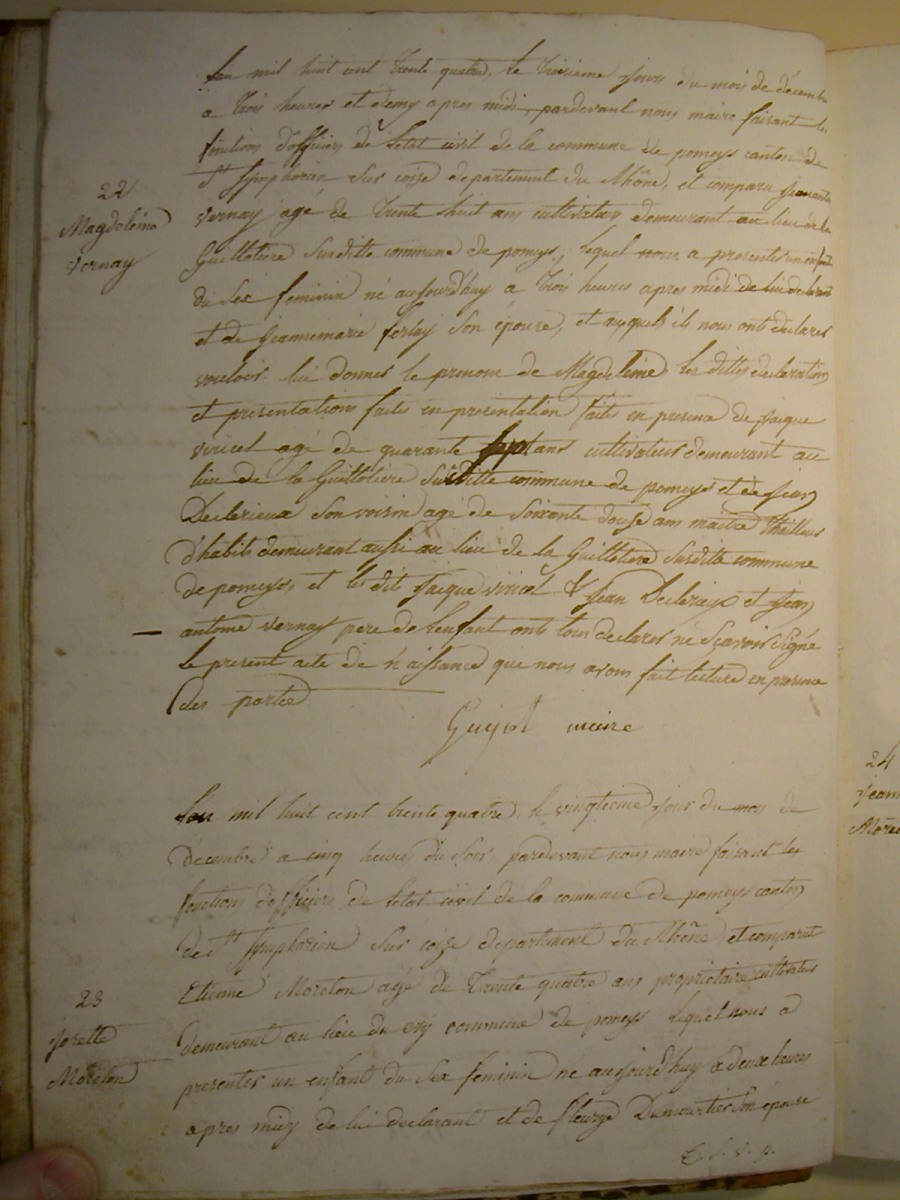 L'an mil huit cent trente quatre, le troisieme jour du mois de décembre
a trois heures et demy apres midi, pardevant nous maire faisant les
fonctions d'officier de letat civil de la commune de pomeys canton de
St Symphorien sur coize departement du Rhône, et comparu
22
Magdeleine
vernay
vernay agé de trente huit ans cultivateur demeurant au lieu de la
Guillotiere susditte commune de pomeys, lequel nous a presenter un enfant
du sex feminin né aujourd'huy a trois heures apres midi de lui declarant
et de jeannemarie ferlay son épouse, et auquels ils nous onts declarer
vouloir lui donner le prenom de Magdeleine les dittes declarations
et presentations faites en presentation faite en presence de jacque
viricel agé de quarante sept ans cultivateur demeurant au
lieu de la Guillotiere susditte commune de pomeys et de jean
Declerieux son voisin agé de soixante douse ans maitre thailleur
d'habits demeurant aussi au lieu de la Guillotiere susditte commune
de pomeys, et les dit jacque viricel & jean Declerieux et jean
antoine vernay pere de l'enfant onts tous declarer ne scavoir signé
le present acte de n'aissance que nous avons fait lecture en presence
des partie
Guyot maire
L'an mil huit cent trente quatre, le vingtieme jour du mois de
décembre a cinq heures du soir, pardevant nous maire faisant les
fonctions dofficier de letat civil de la commune de pomeys canton
de St Symphorien sur coize departement du Rhône, et comparut
Etienne Moreton agé de trente quatre ans propriétaire cultivateur
23
josette
Moreton
demeurant au lieu du commune de pomeys lequel nous a
presenter un enfant du sex feminin né aujourd'huy a deux heures
apres midy de lui declarant et de fleurye Dumortier son épouse
T. S. V. p.
24
jean
More